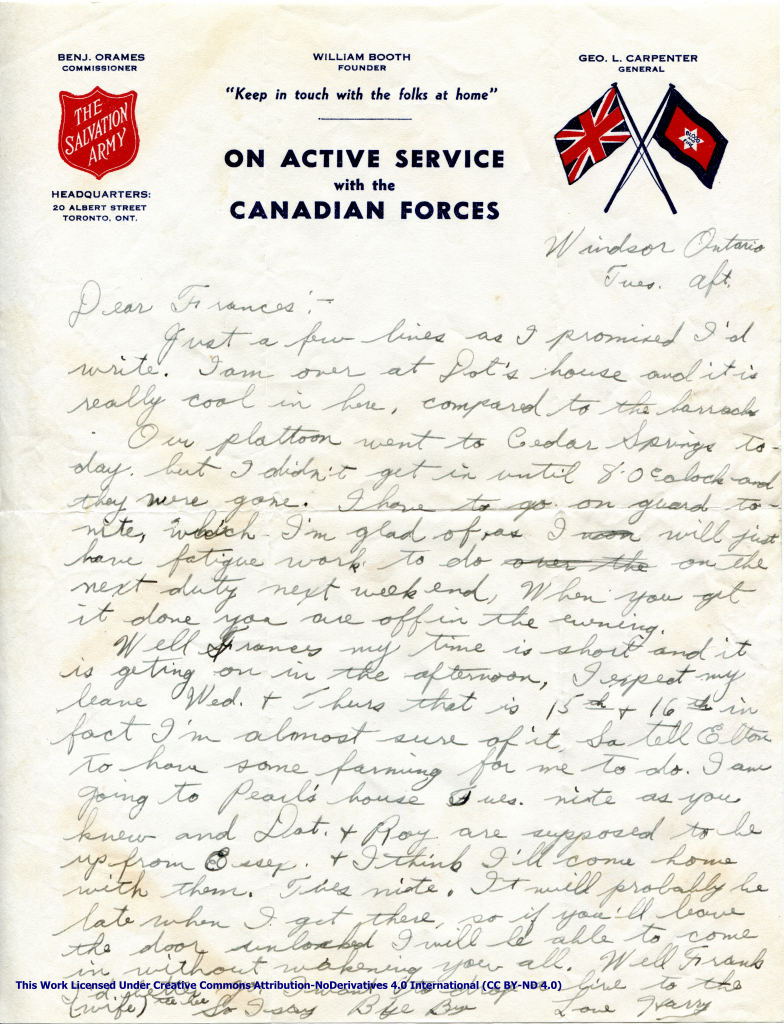 BENJ. ORAMES
COMMISSIONER
WILLIAM BOOTH
FOUNDER
GEO. L. CARPENTER
GENERAL
"Keep in touch with the folks at home"
THE
SALVATION
ARMY
BLOOD
AND
FIRE
ON ACTIVE SERVICE
with the
CANADIAN FORCES
HEADQUARTERS:
20 ALBERT STREET
TORONTO, ONT.
Windsor Ontario
Tues. aft.
Dear Frances:-
Just a few lines as I promised I'd
write. I am over at Dot's house and it is
really cool in here, compared to the barracks
Our plattoon went to Cedar Springs to-
day. but I didn't get in until 8:0'clock and
they were gone. I have to go on guard to-
nite, which I'm glad of, as I will just
have fatigue work to do over the on the
next duty next week end, When you get
it done you are off in the evening.
Well Frances my time is short and it
is geting on in the afternoon, I expect my
leave Wed. & Thurs that is 15th & 16th in
fact I'm almost sure of it, So tell Elton
to have some farming for me to do. I am
going to Pearl's house Tues. nite as you
knew and Dot. & Roy are supposed to be
up from Essex. & I think I'll come home
with them. Tues nite. It will probably be
late when I get there, so if you'll leave
the door unlocked I will be able to come
in without wakening you all. Well Frank
I want to drop line to the
(wife) So I say Bye Bye Love Harry
This Work Licensed Under Creative Commons Attribution-NoDerivatives 4.0 International (CC BY-ND 4.0)